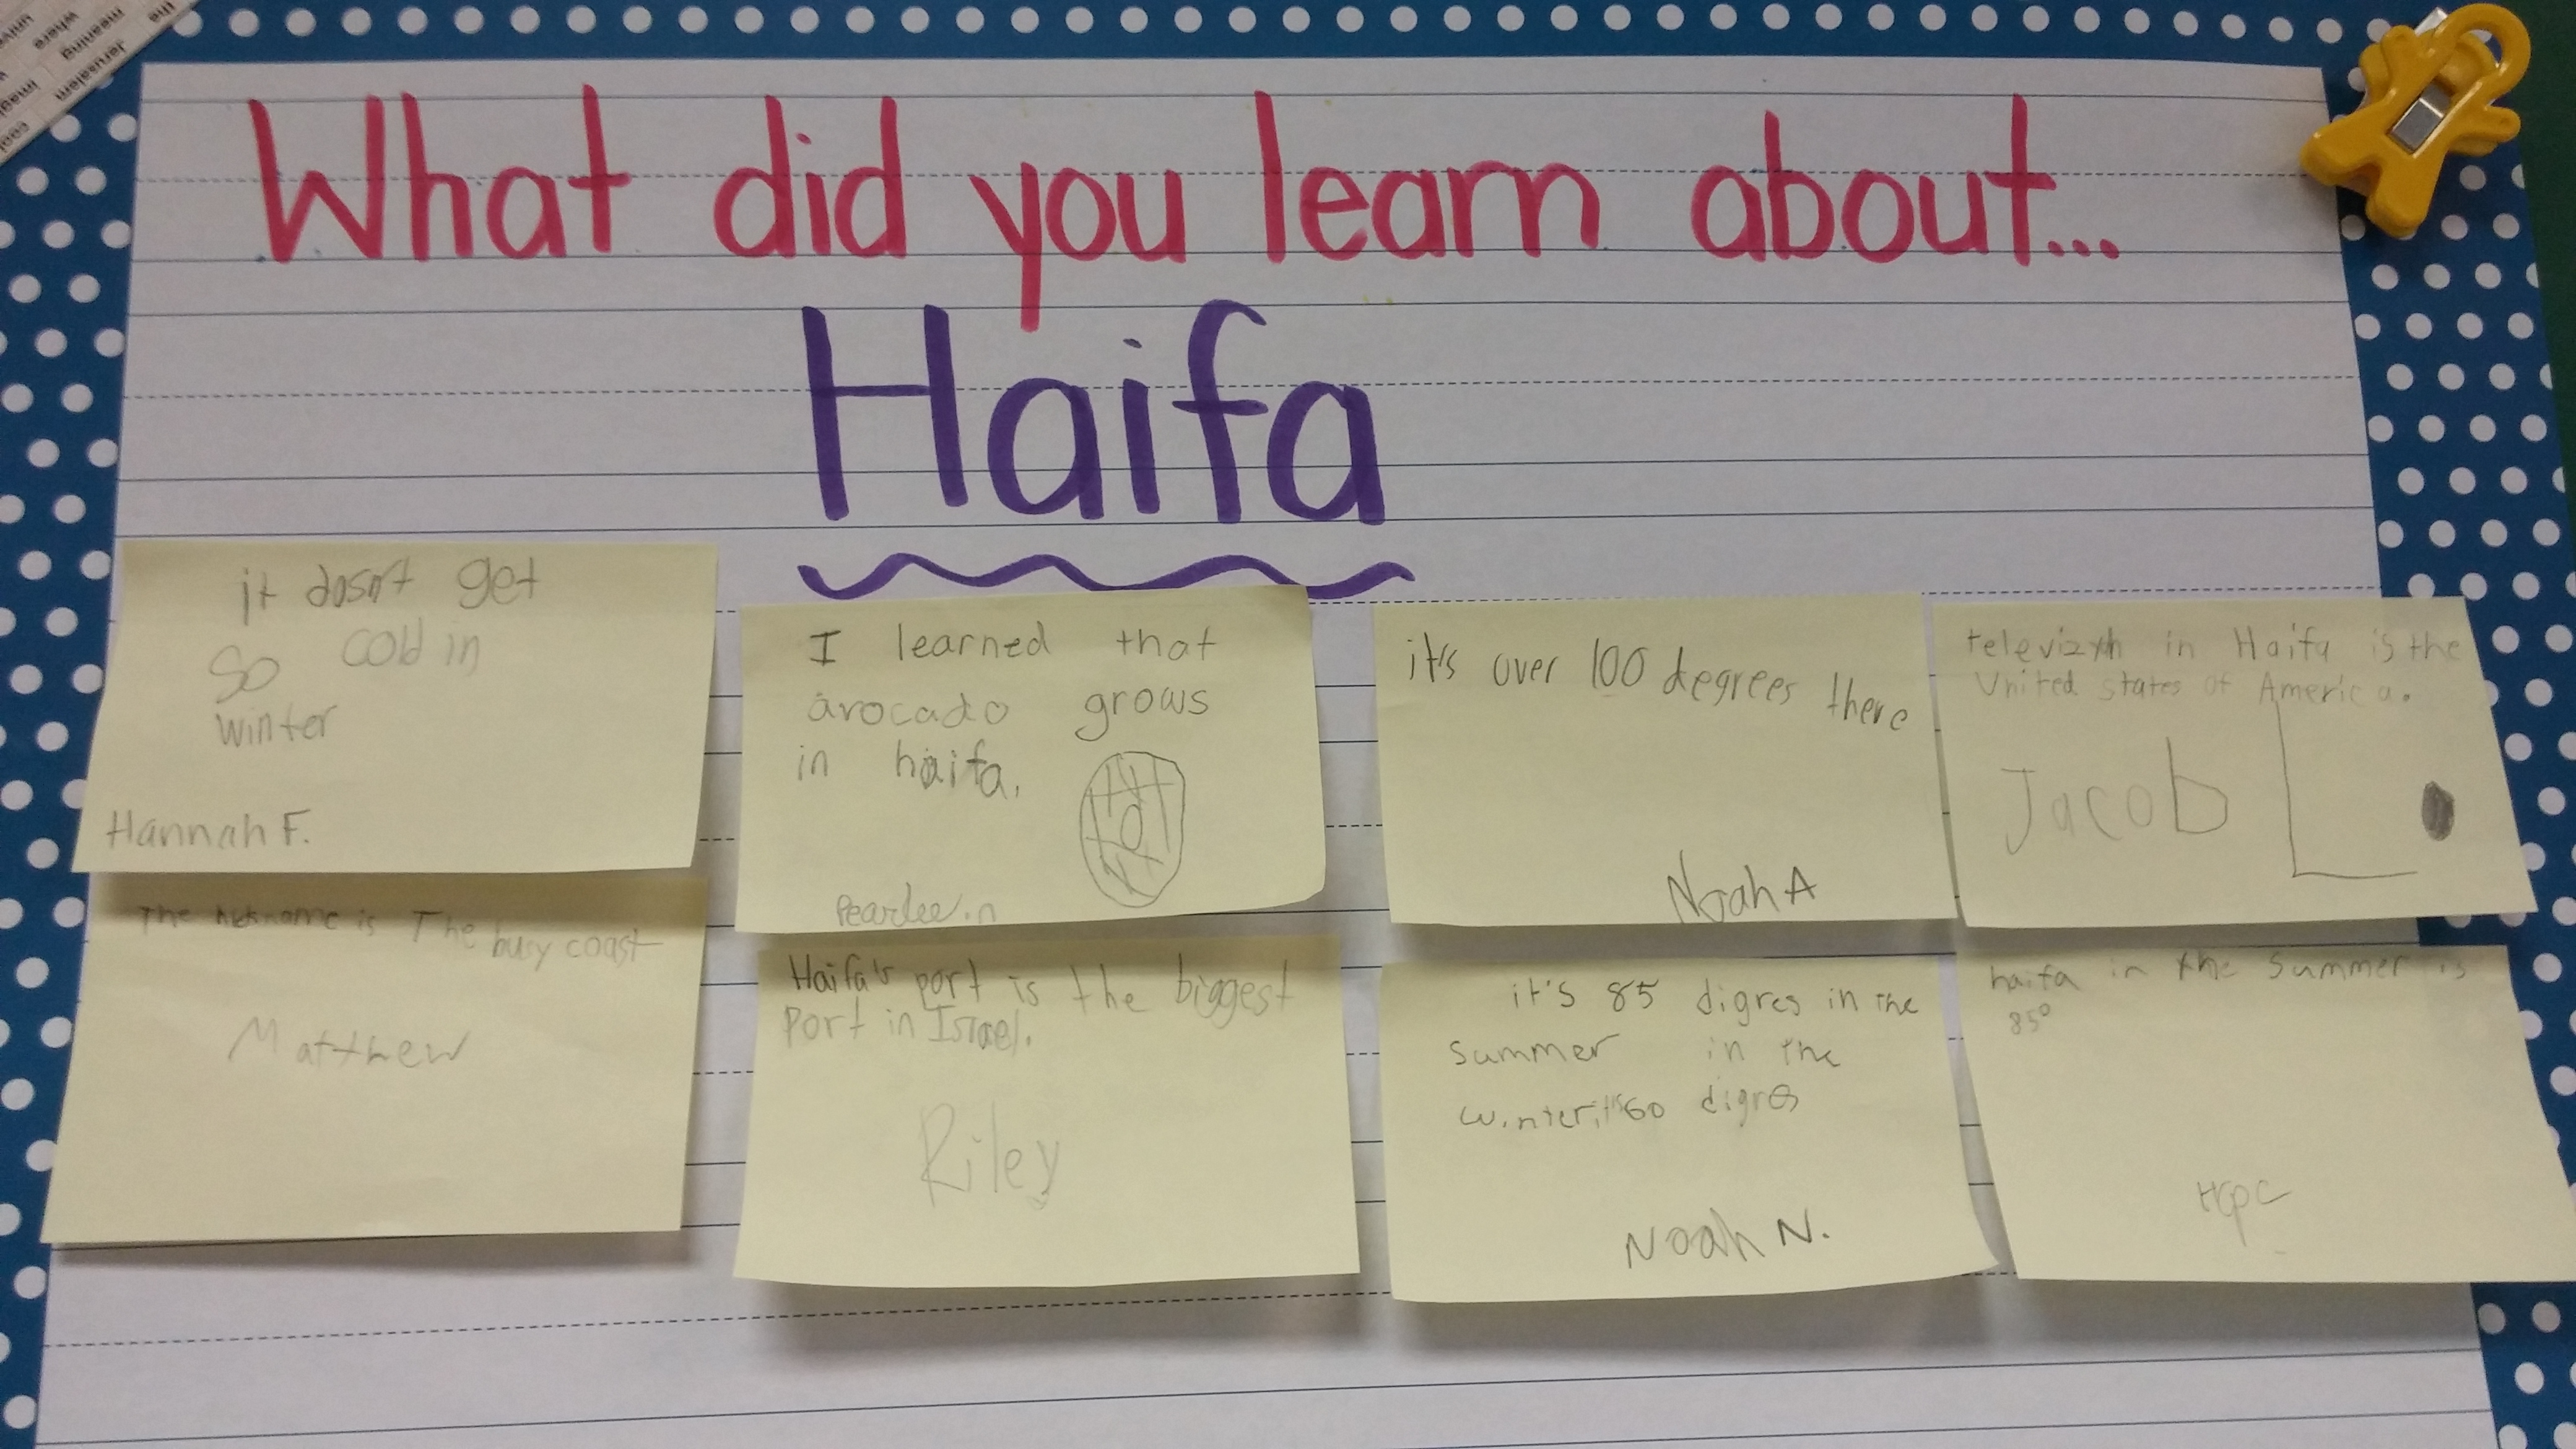 the
meaning
where
univ
Jerusalem
imag
cool
What did you learn about...
Haifa
it dosnt get
so cold in
winter
Hannah F.
I learned that
avocado grows
in haifa.
Pearlee.n
it's over 100 degrees there
Noah A
in Haifa is the
United states of America.
Jacob L.
The nickname is The busy coast
Matthew
Haifa's port is the biggest
Port in Israel.
Riley
it's 85 digres in the
summer in the
winter, it's 60 digres
Noah N.
haifa in the summer is
85°